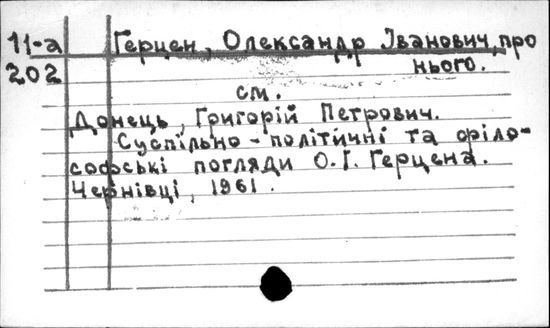 11-а Герцен, Олександр Іванович, про
202 нього.
см.
Донець, Григорій Петрович.
Суспільно-політичні та філо-
софські погляди О.І. Герцена.
Чернівці, 1961.